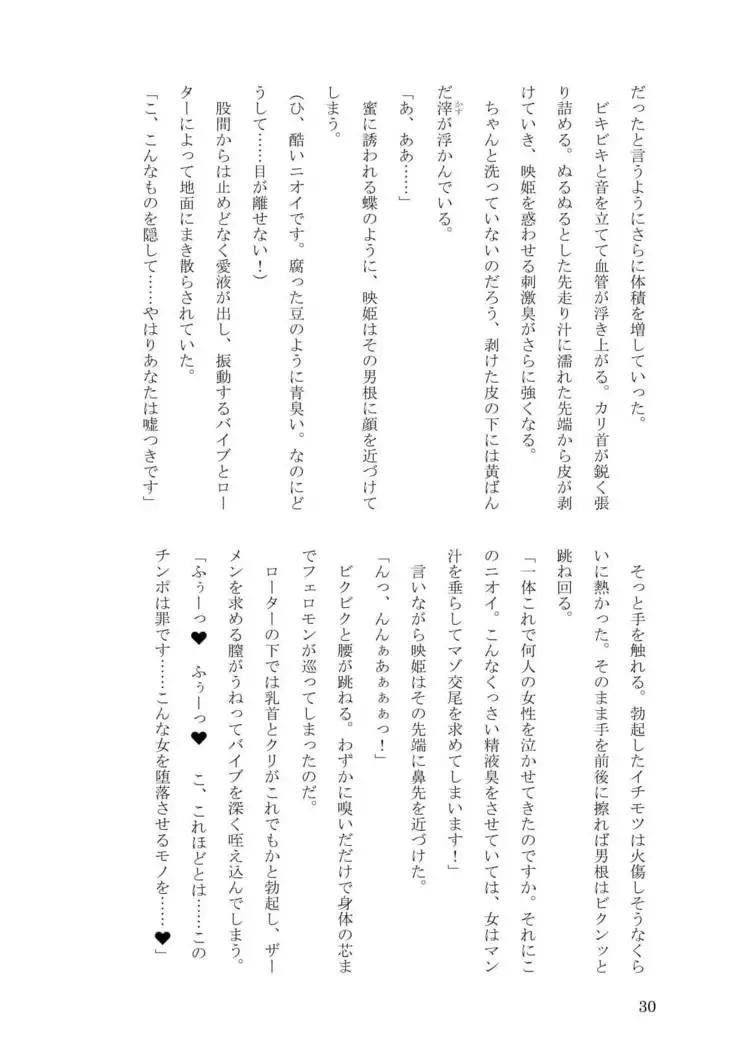 だったと言うようにさらに体積を増していった。
ビキビキと音を立てて血管が浮き上がる。カリ首が鋭く張
り詰める。ぬるぬるとした先走り汁に濡れた先端から皮が剥
けていき、映姫を惑わせる刺激臭がさらに強くなる。
ちゃんと洗っていないのだろう、剥けた皮の下には黄ばん
だ滓が浮かんでいる。
かす
「あ、ああ……」
蜜に誘われる蝶のように、映姫はその男根に顔を近づけて
しまう。
（ひ、酷いニオイです。腐った豆のように青臭い。なのにど
うして……目が離せない！）
股間からは止めどなく愛液が出し、振動するバイブとロー
ターによって地面にまき散らされていた。
「こ、こんなものを隠して……やはりあなたは嘘つきです」
そっと手を触れる。勃起したイチモツは火傷しそうなくら
いに熱かった。そのまま手を前後に擦れば男根はビクンッと
跳ね回る。
「一体これで何人の女性を泣かせてきたのですか。それにこ
のニオイ。こんなくっさい精液臭をさせていては、女はマン
汁を垂らしてマゾ交尾を求めてしまいます！」
言いながら映姫はその先端に鼻先を近づけた。
「んっ、んんぁあぁぁぁっ！」
ビクビクと腰が跳ねる。わずかに嗅いだだけで身体の芯ま
でフェロモンが巡ってしまったのだ。
ローターの下では乳首とクリがこれでもかと勃起し、ザー
メンを求める膣がうねってバイブを深く咥え込んでしまう。
「ふぅーっ♥　ふぅーっ♥　こ、これほどとは……この
チンポは罪です……こんな女を堕落させるモノを……♥」
30